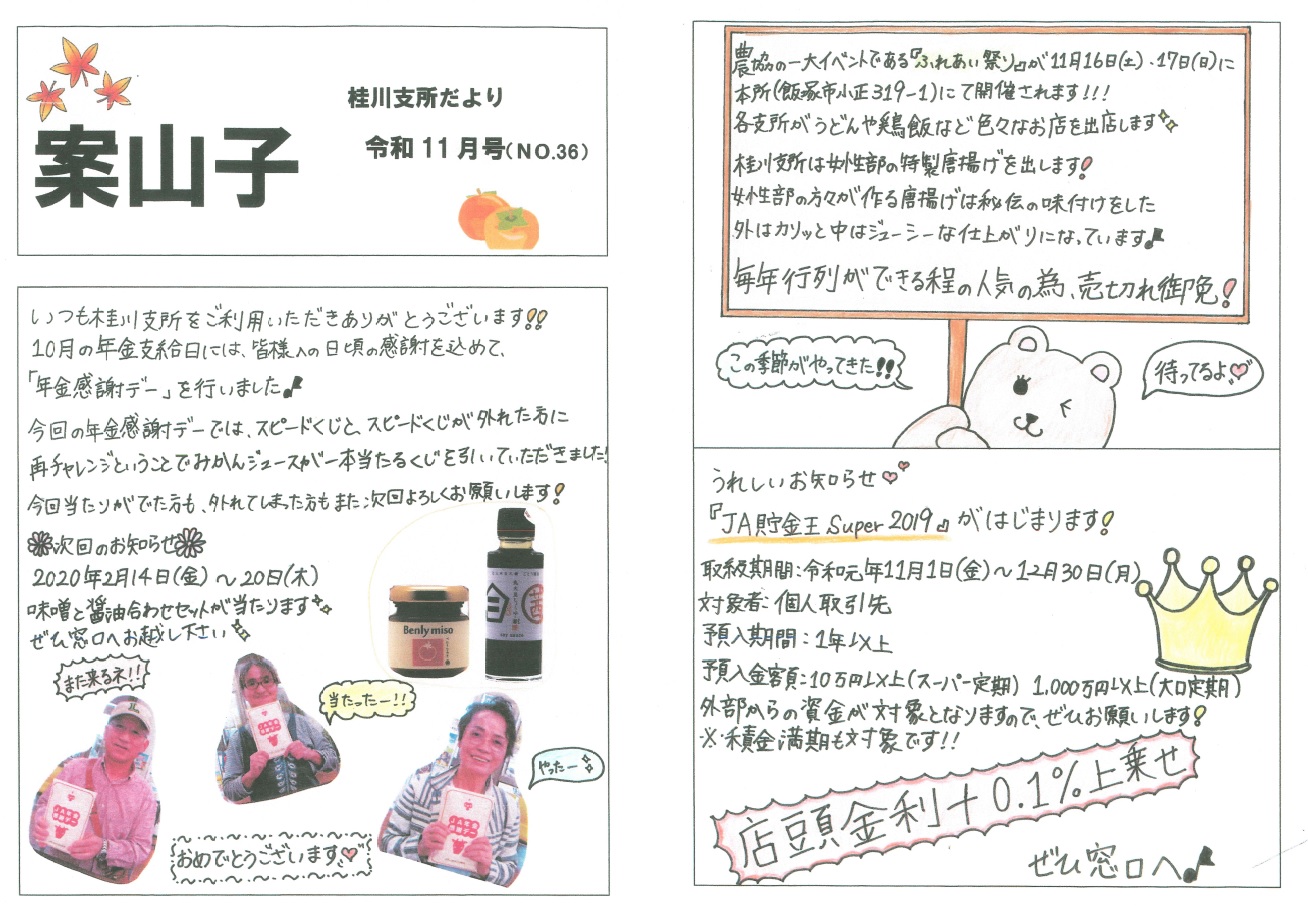 桂川支所だより
令和11月号(NO.36)
案山子
いつも桂川支所をご利用いただきありがとうございます!!
10月の年金支給日には、皆様への日頃の感謝を込めて、
「年金感謝デー」を行いました♪
今回の年金感謝デーでは、スピードくじと、スピードくじが外れた方に
再チャレンジということでみかんジュースが一本当たるくじを引いていただきました!
今回当たりがでた方も、外れてしまった方もまた次回よろしくお願いします!
次回のお知らせ
2020年2月14日(金)~20日(木)
味噌と醤油合わせセットが当たります
ぜひ窓口へお越し下さい
Benly miso
また来るネ!!
当たったー!!
やったー
おめでとうございます♡
農協の一大イベントである『ふれあい祭り』が11月16日(土)・17日(日)に
本所(飯塚市小正319-1)にて開催されます!!!
各支所がうどんや鶏飯など色々なお店を出店します
桂川支所は女性部の特製唐揚げを出します!
女性部の方々が作る唐揚げは秘伝の味付けをした
外はカリッと中はジューシーな仕上がりになっています♪
毎年行列ができる程の人気の為、売切れ御免!
この季節がやってきた!!
待ってるよ♡
うれしいお知らせ♡♡
『JA貯金王Super2019』がはじまります!
取扱期間:令和元年11月1日(金)~12月30日(月)
対象者:個人取引先
預入期間:1年以上
預入金額:10万円以上(スーパー定期) 1,000万円以上(大口定期)
外部からの資金が対象となりますので、ぜひお願いします!
※積金満期も対象です!!
店頭金利+0.1%上乗せ
ぜひ窓口へ♪